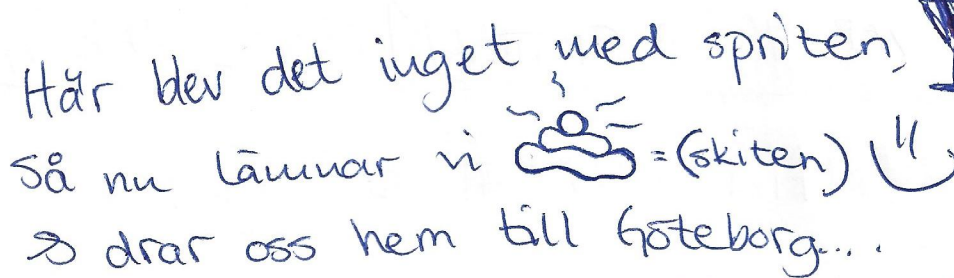 Här blev det inget med spriten,
Så nu lämnar vi = (skiten)
& drar oss hem till Göteborg....